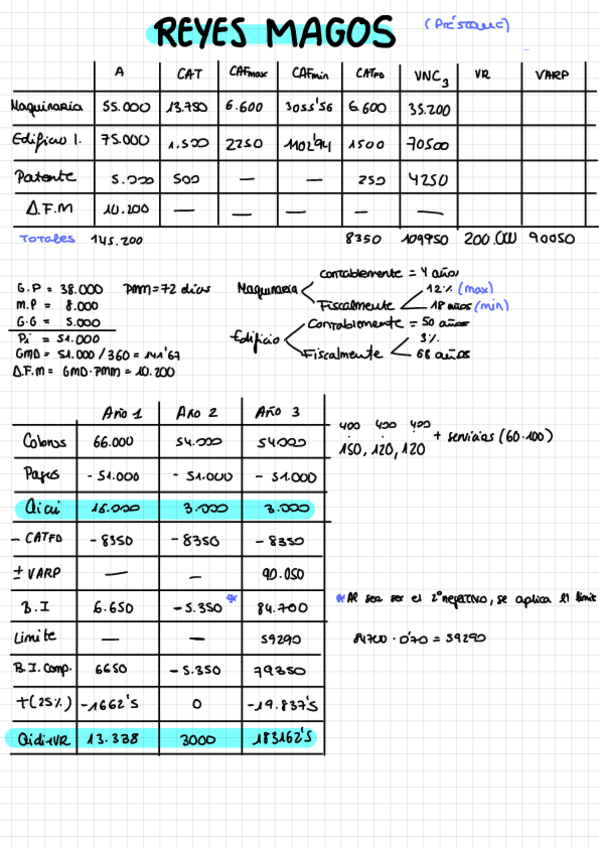 REYES MAGOS (Préstamo)
A CAT CAFmax CAFmin CATFD VNC3 VR VARP
Maquinaria 55.000 13.750 6.600 3055'56 6.600 35.200
Edificio I. 75.000 1.500 2250 1102'94 1500 70500
Patente 5.000 500 — — 250 4250
Δ.F.M 10.200 — — — — —
TOTALES 145.200 8350 109950 200.000 90050
G.P = 38.000 PMM=72 días
M.P = 8.000
G.G = 5.000
Pi = 51.000
GMD = 51.000/360 = 141'67
Δ.F.M = GMD·PMM = 10.200
Maquinaria
Contablemente = 4 años
Fiscalmente
12% (max)
18 años (min)
Edificio
Contablemente = 50 años
Fiscalmente
3%
68 años
Año 1 Año 2 Año 3
Cobros 66.000 54.000 54000
Pagos - 51.000 - 51.000 - 51.000
Qiai 16.000 3.000 3.000
- CATFD -8350 -8350 -8350
± VARP — — 90.050
B.I 6.650 -5.350 * 84.700
Limite — — 59290
B.I. Comp. 6650 -5.350 79350
T(25%) -1662'5 0 -19.837'5
Qidi+VR 13.338 3000 183162'5
400 400 400
150, 120, 120 + servicios (60·100)
* Al ser el 2º negativo, se aplica el limit
84700 · 0'70 = 59290